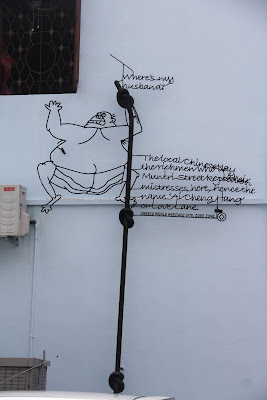 Where's my
husband?
The local Chinese say
the richmen who
Muntri Street kept their
mistresses here, hence the
name 'Ai Cheng Hang'
or Love Lane.
UNESCO WORLD HERITAGE SITE, CORE ZONE